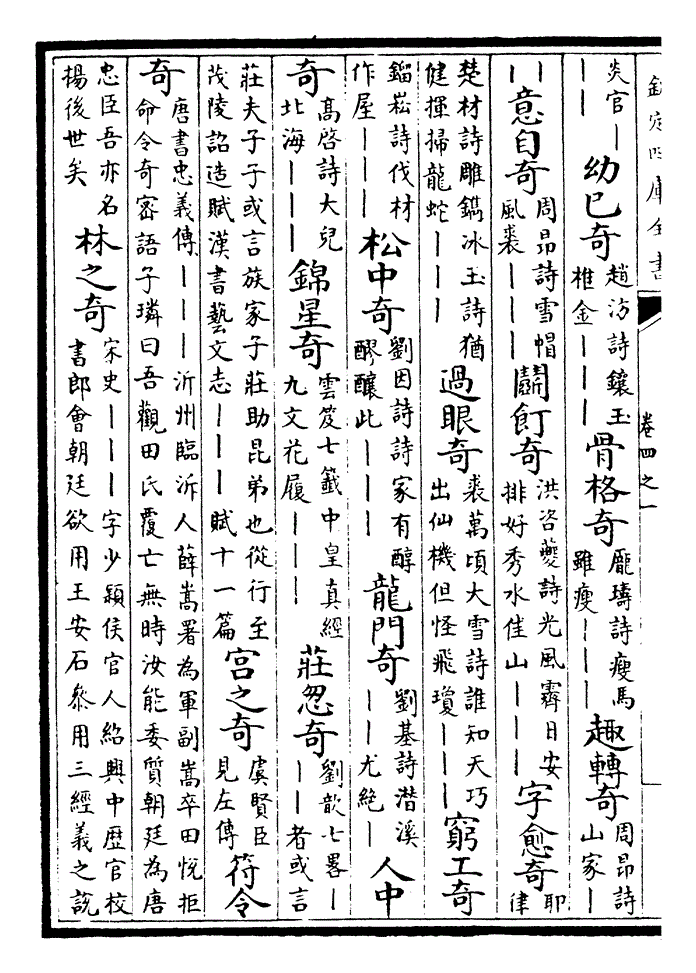 欽定四庫全書 卷四之一
炎官丨丨丨 幼已奇 趙汸詩鑲玉椎金丨丨丨 骨格奇 龐璹詩瘦馬雖瘦丨丨丨 趣轉奇 周昂詩山家丨
丨丨 意自奇 周昂詩雪帽風裘丨丨丨 鬭飣奇 洪咨夔詩光風霽日安排好秀水佳山丨丨丨 字愈奇 耶律
楚材詩雕鐫冰玉詩猶健揮掃龍蛇丨丨丨 過眼奇 裘萬頃大雪詩誰知天巧出仙機但怪飛瓊丨丨丨 窮工奇
鎦崧詩伐材作屋丨丨丨 松中奇 劉因詩詩家有醇醪釀此丨丨丨 龍門奇 劉基詩潛溪丨丨尤絶丨 人中
奇 高啓詩大兒北海丨丨丨 錦星奇 雲笈七籤中皇真經九文花履丨丨丨 莊怱奇 劉歆七畧丨丨丨者或言
莊夫子子或言族家子莊助昆弟也從行至茂陵詔造賦漢書藝文志丨丨丨賦十一篇 宫之奇 虞賢臣見左傳 符令
奇 唐書忠義傳丨丨丨沂州臨沂人薛嵩署為軍副嵩卒田悅拒命令奇密語子璘曰吾觀田氏覆亡無時汝能委質朝廷為唐
忠臣吾亦名揚後世矣 林之奇 宋史丨丨丨字少穎侯官人紹興中歴官校書郎會朝廷欲用王安石叅用三經義之説